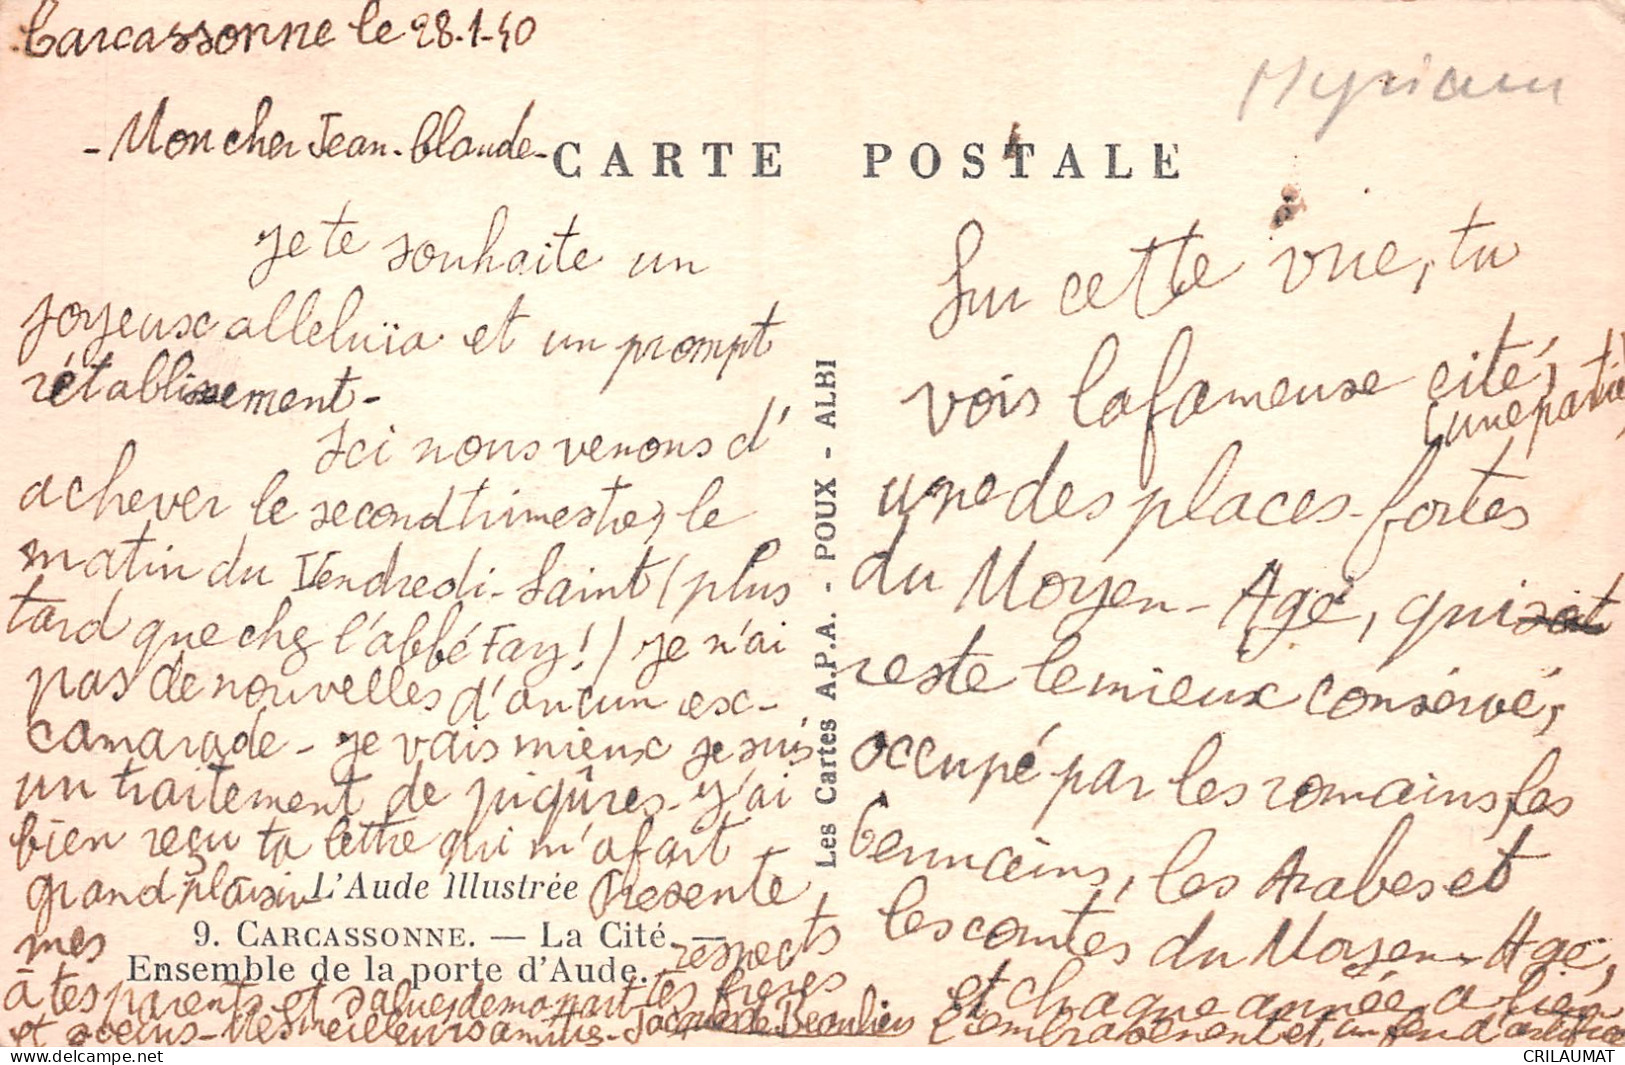 Carcassonne le 28-1-40
- Mon cher Jean-Claude -
CARTE POSTALE
Myriam
Je te souhaite un
joyeux alleluïa et un prompt
rétablissement -
Ici nous venons d'
achever le second trimestre, le
matin du Vendredi-Saint (plus
tard que chez l'abbé Fay!) je n'ai
pas de nouvelles d'aucun ex-
camarade - Je vais mieux je suis
un traitement de piqûres - J'ai
bien reçu ta lettre qui m'a fait
grand plaisir
Présente
mes
respects
à tes parents et salues de ma part tes frères
et soeurs - Mes meilleures amitiés - Jacques de Beaulieu
L'Aude Illustrée
9. CARCASSONNE. — La Cité. —
Ensemble de la porte d'Aude.
Les Cartes A.P.A. - POUX - ALBI
Sur cette vue, tu
vois la fameuse cité,
(une partie)
une des places-fortes
du Moyen-Age, qui
reste le mieux consérvé,
occupé par les romains, les
Germains, les Arabes et
les comtes du Moyen-Age,
et chaque année a lieu
l'embrasement et un feu d'artifice
CRILAUMAT